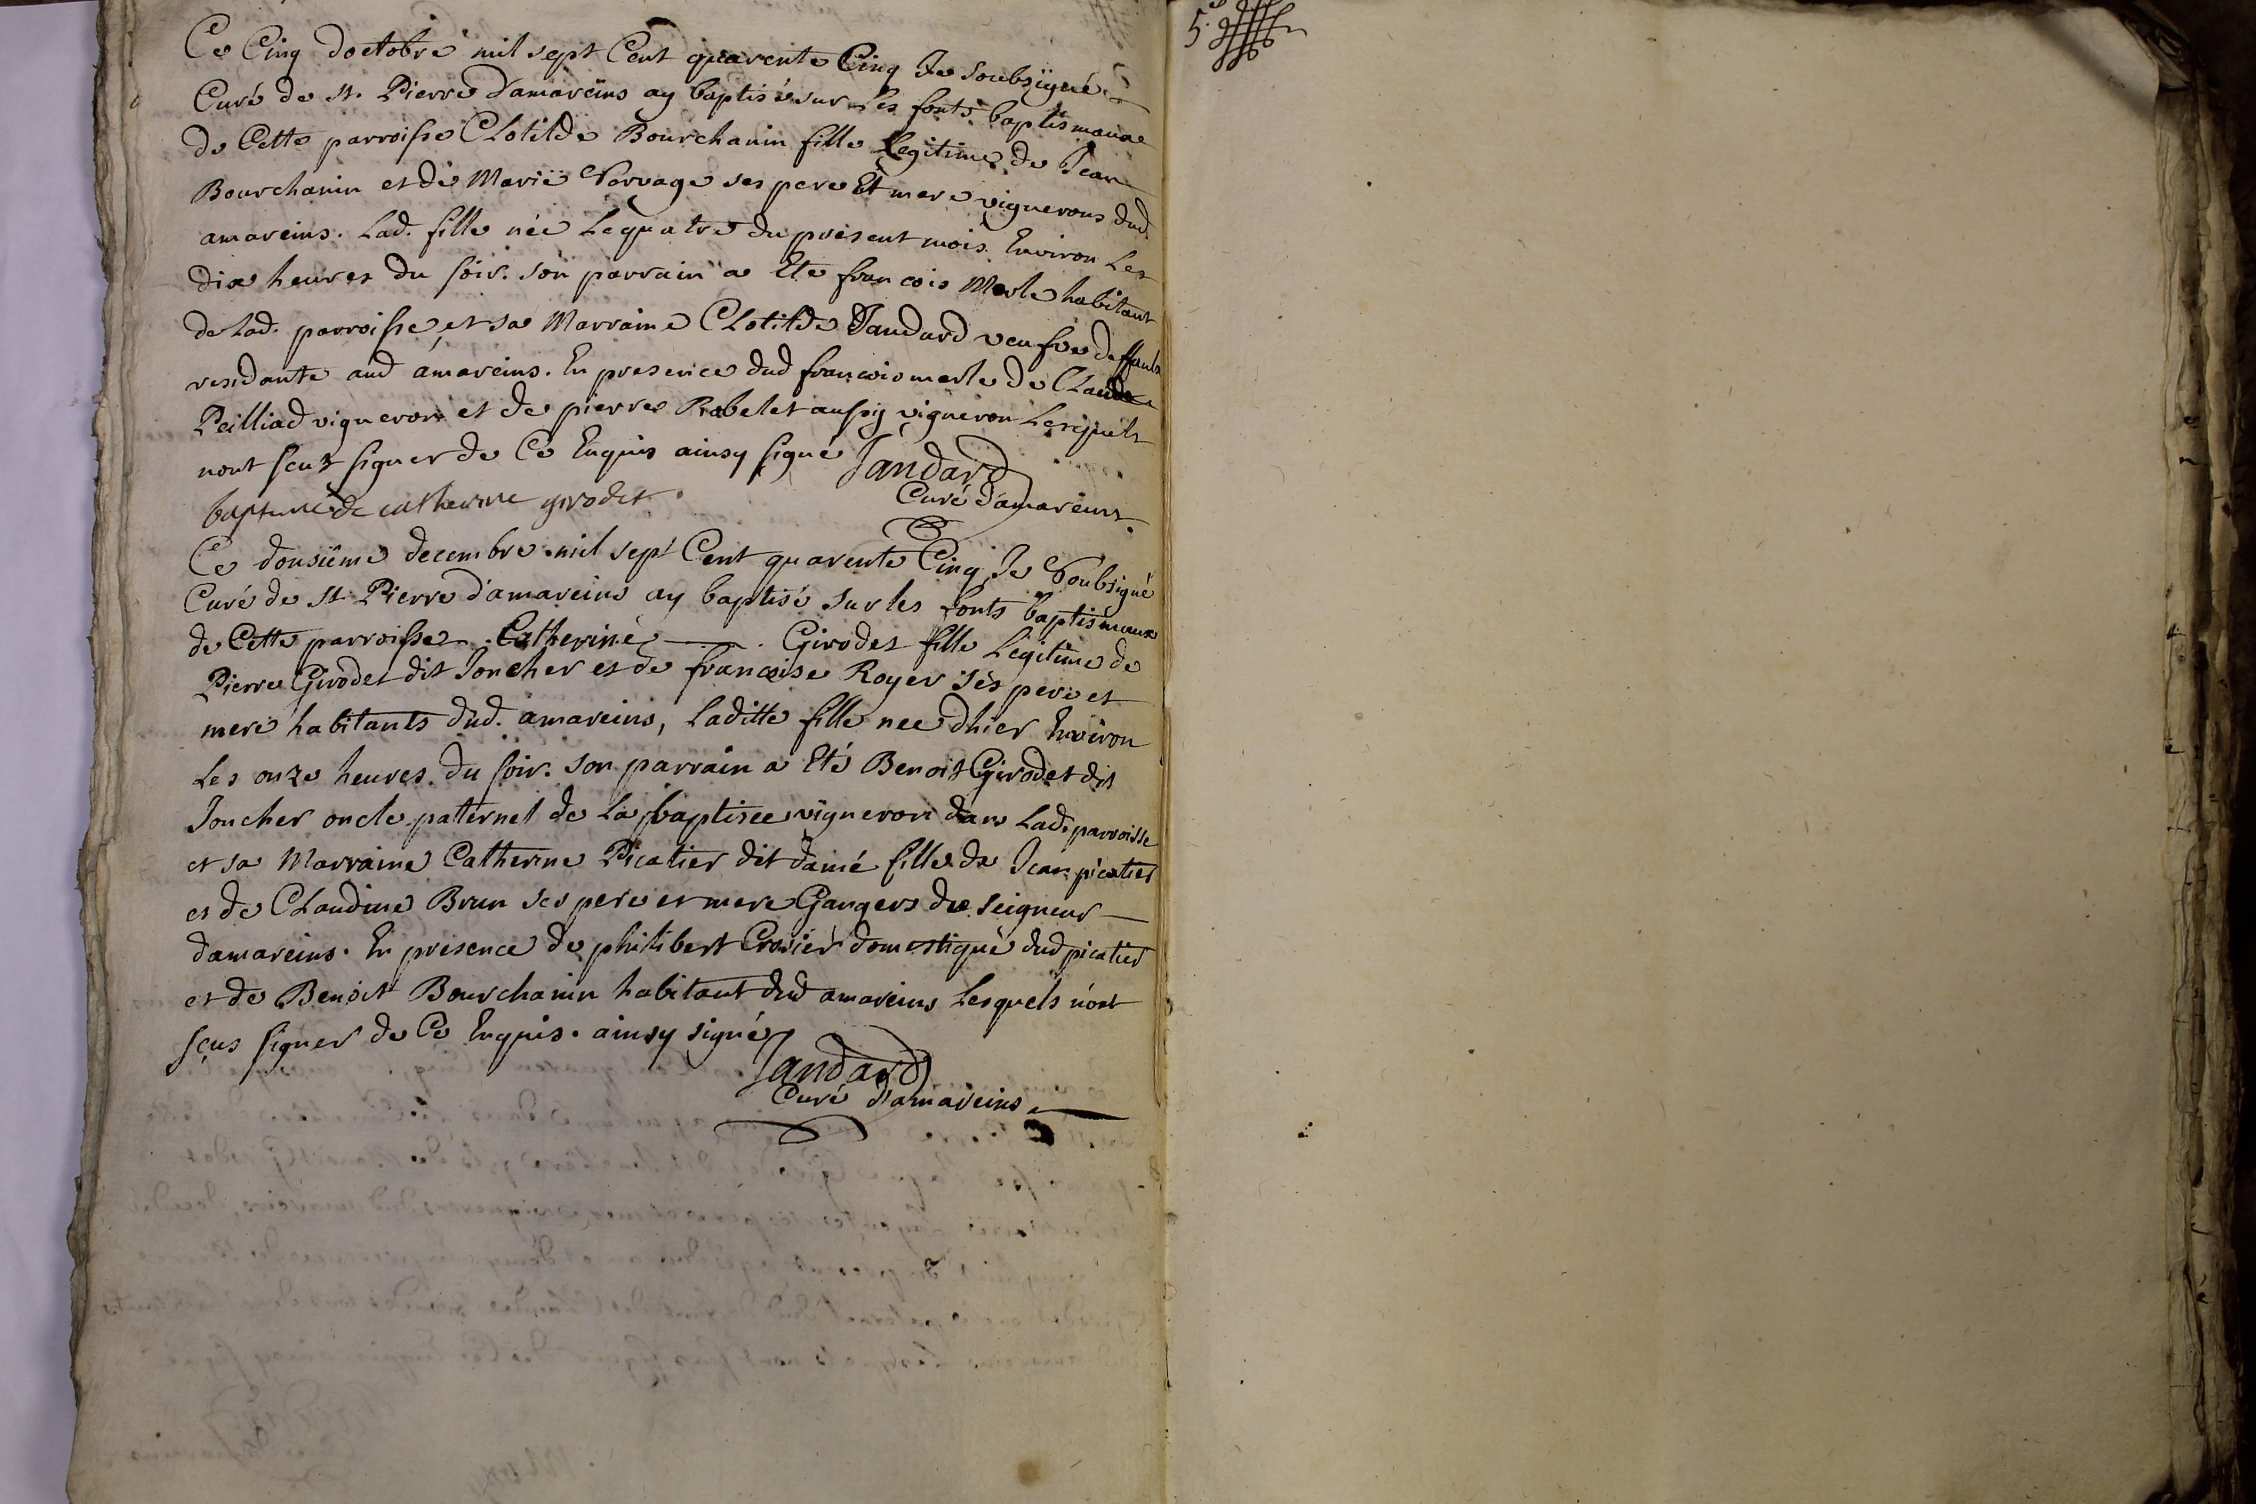 Ce Cinq doctobre mil sept Cent quarente Cinq Je soubsigné
Curé de St. Pierre d'amareins ay baptisé sur Les fonts baptismaux
de Cette parroisse CLotilde Bourchanin fille Legitime de Jean
Bourchanin et de Marie Sorvage ses pere Et mere vignerons dud.
amareins. Lad. fille née Le quatre du present mois. Environ Les
dix heures du soir. son parrain a Ete francois Merle habitant
de lad. parroisse, et sa Marraine CLotilde Jandard veufve
residante aud amareins. En presence dud francois merle de CLaude
Peilliad vigneron et de pierre Robelet aussy vigneron Lesquels
nont sceuz signer de Ce Enquis ainsy signé Jandard
Curé d'amareins.
bapteme de catherine girodet.
Ce dousiême decembre mil sept Cent quarente Cinq Je Soubsigné
Curé de St Pierre d'amareins ay baptisé sur les fonts baptismaux
de Cette parroisse. Catherine Girodet fille Legitime de
Pierre Girodet dit Joncher et de francoise Royer ses pere et
mere habitants dud. amareins, laditte fille nee dhier Environ
Les onze heures du soir. son parrain a Eté Benoit Girodet dit
Joncher oncle paternel de La baptisee vigneron dans Lad. parroisse
et sa Marraine Catherine Picatier dit damé fille de Jean picatier
et de CLaudine Brun ses pere et mere Gangers du seigneur
damareins. En présence de philibert Crosier domestique dud picatier
et de Benoit Bourchanin habitant dud amareins Lesquels n'ont
sçus signer de Ce Enquis. ainsy signé
Jandard
Curé d'amareins
5.e